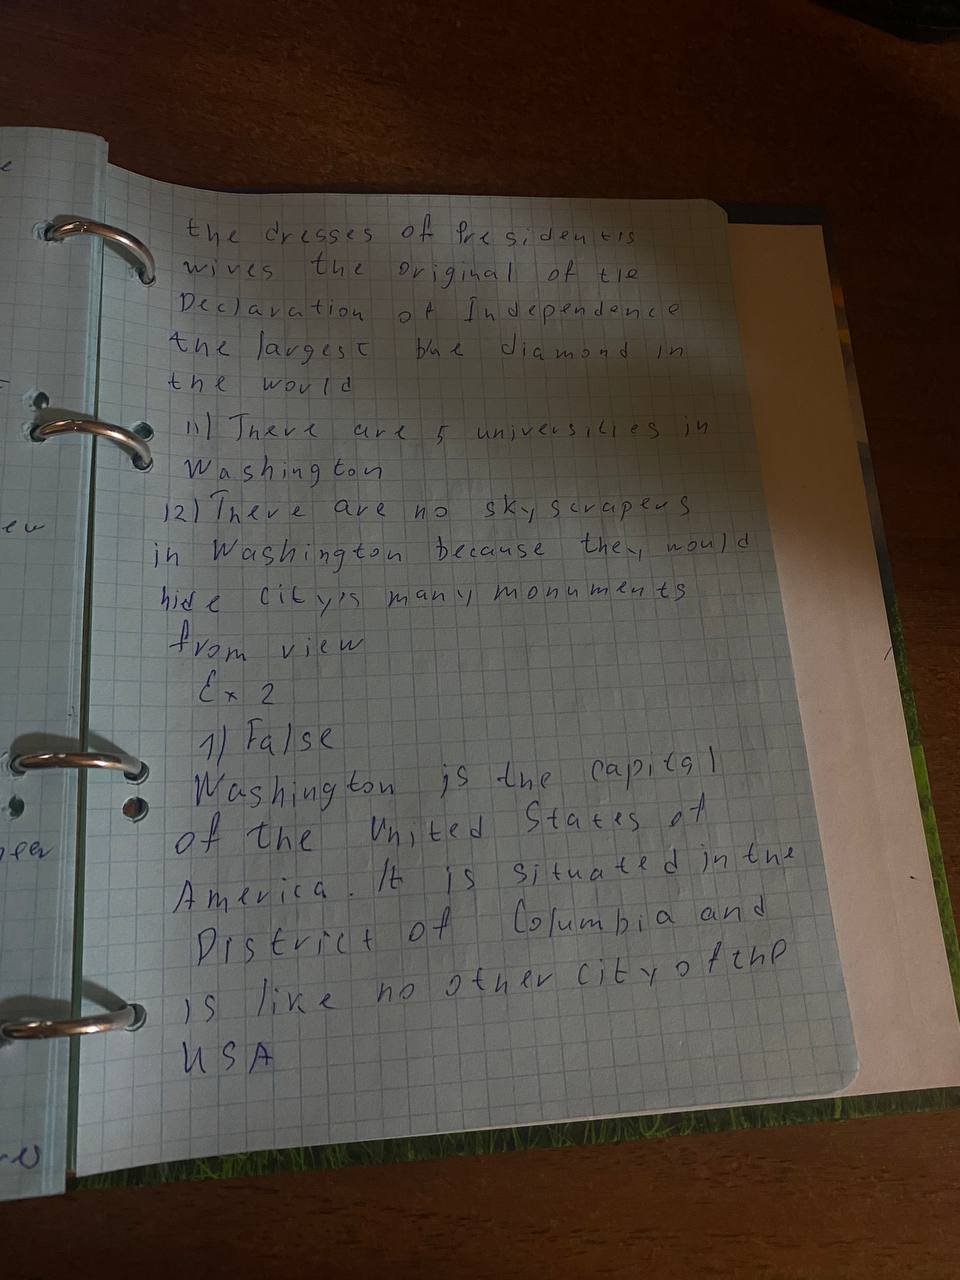 the dresses of Presidentis
wives the original of the
Declaration of Independence
the largest blue diamond in
the would
11) There are 5 universities in
Washington
12) There are no skyscrapers
in Washington because they would
hide city's many monuments
from view
Ex 2
1) False
Washington is the capital
of the United States of
America. It is situated in the
District of Columbia and
is like no other city of the
USA